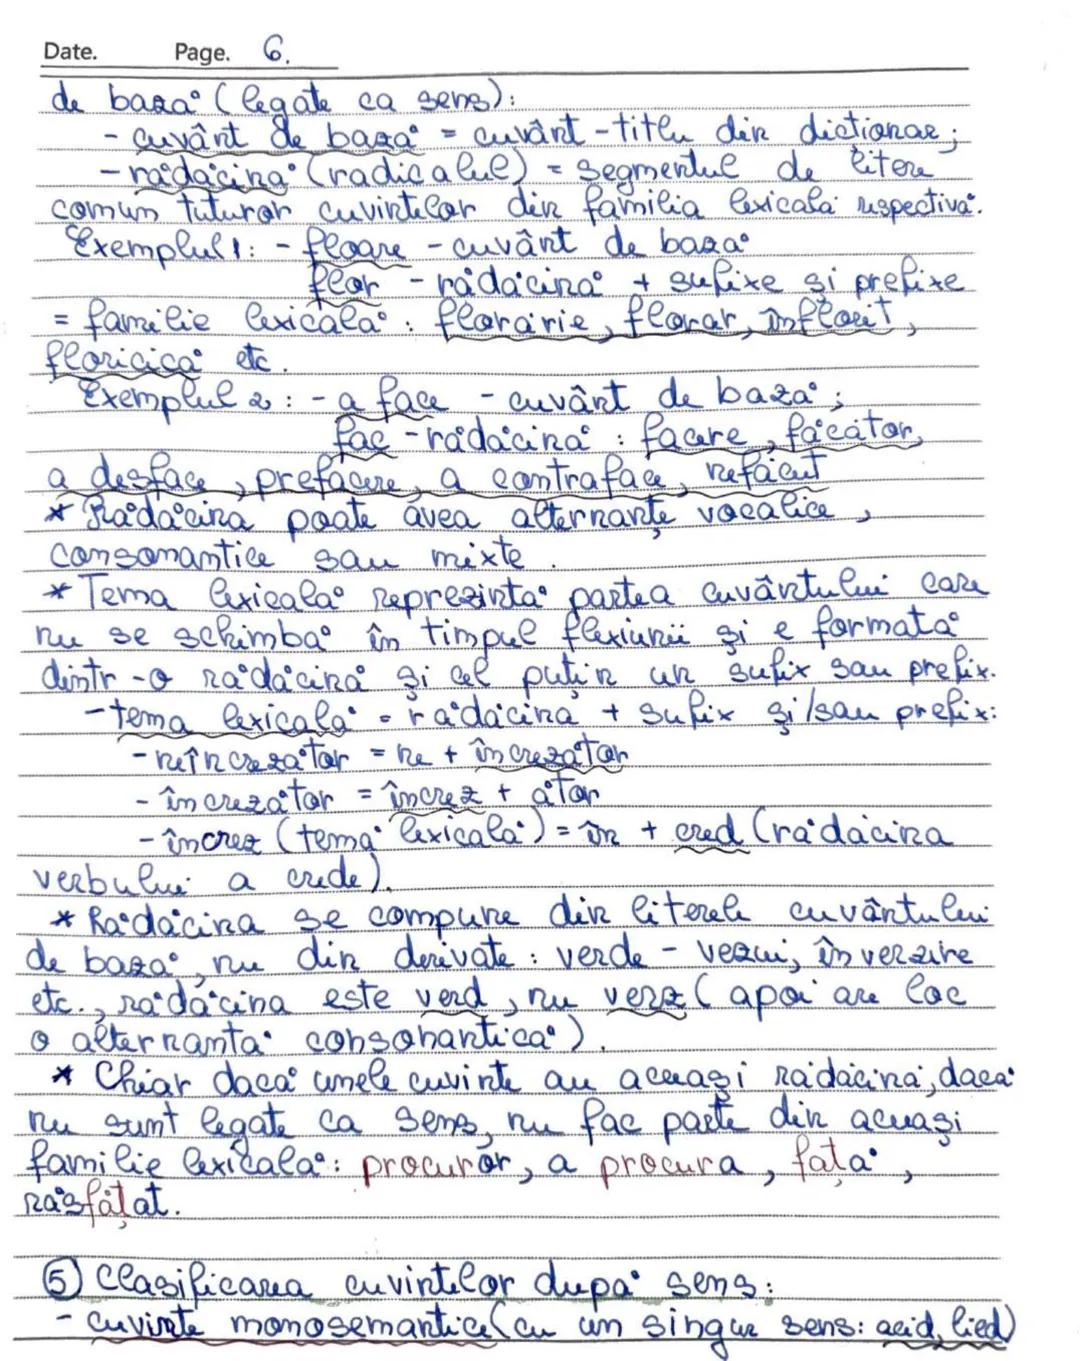 Date. Page. 6.
de bază (legate ca sens):
- cuvânt de bază = cuvânt-titlu din dicționar;
- rădăcina (radicalul) = segmentul de litere
comun tuturor cuvintelor din familia lexicală respectivă.
Exemplul 1: - floare - cuvânt de bază
flor - rădăcină + sufixe și prefixe
= familie lexicală: florărie, florar, înflorit,
floricică etc.
Exemplul 2: - a face - cuvânt de bază;
fac - rădăcină: facere, făcător,
a desface, prefacere, a contraface, nefăcut
* Rădăcina poate avea alternanțe vocalice,
consonantice sau mixte.
* Tema lexicală reprezintă partea cuvântului care
nu se schimbă în timpul flexiunii și e formată
dintr-o rădăcină și cel puțin un sufix sau prefix.
- tema lexicală = rădăcină + sufix și/sau prefix:
- neîncrezător = ne + încrezător
- încrezător = încrez + ător
- încrez (temă lexicală) = în + cred (rădăcina
verbului a crede).
* Rădăcina se compune din literele cuvântului
de bază, nu din derivate: verde - verzui, înverzire
etc., rădăcina este verd, nu verz (apoi are loc
o alternanță consonantică).
* Chiar dacă unele cuvinte au aceeași rădăcină, dacă
nu sunt legate ca sens, nu fac parte din aceeași
familie lexicală: procuror, a procura, față,
răsfățat.
5 Clasificarea cuvintelor după sens:
- cuvinte monosemantice (cu un singur sens: acid, lied)